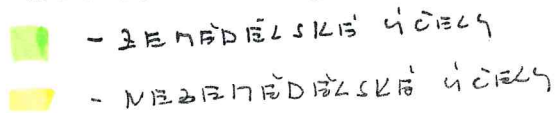 - ZEMĚDĚLSKÉ ÚČELY
- NEZEMĚDĚLSKÉ ÚČELY